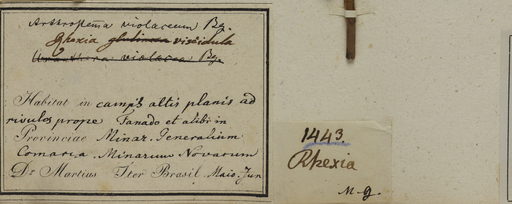 Arthrostema violaceum Bg.
Rhexia glutinosa viscidula
violacea Bg.
Habitat in campis altis planis ad
rivulos prope Tanado et alibi in
Provinciae Minar. Generalium
Comarca Minarum Novarum
Dr Martius Iter Brasil. Maio. Jun
1443.
Rhexia
M. g.